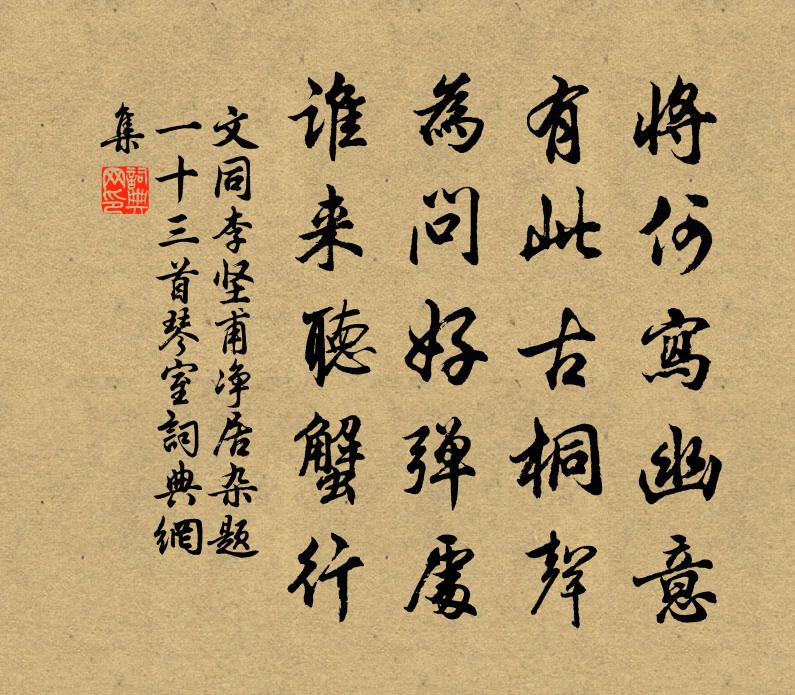 将何寫幽意
有此古桐聲
為問好弹處
谁来聴蟹行
文同李坚甫净居杂题
一十三首琴室詞典網
集
詞典
网印